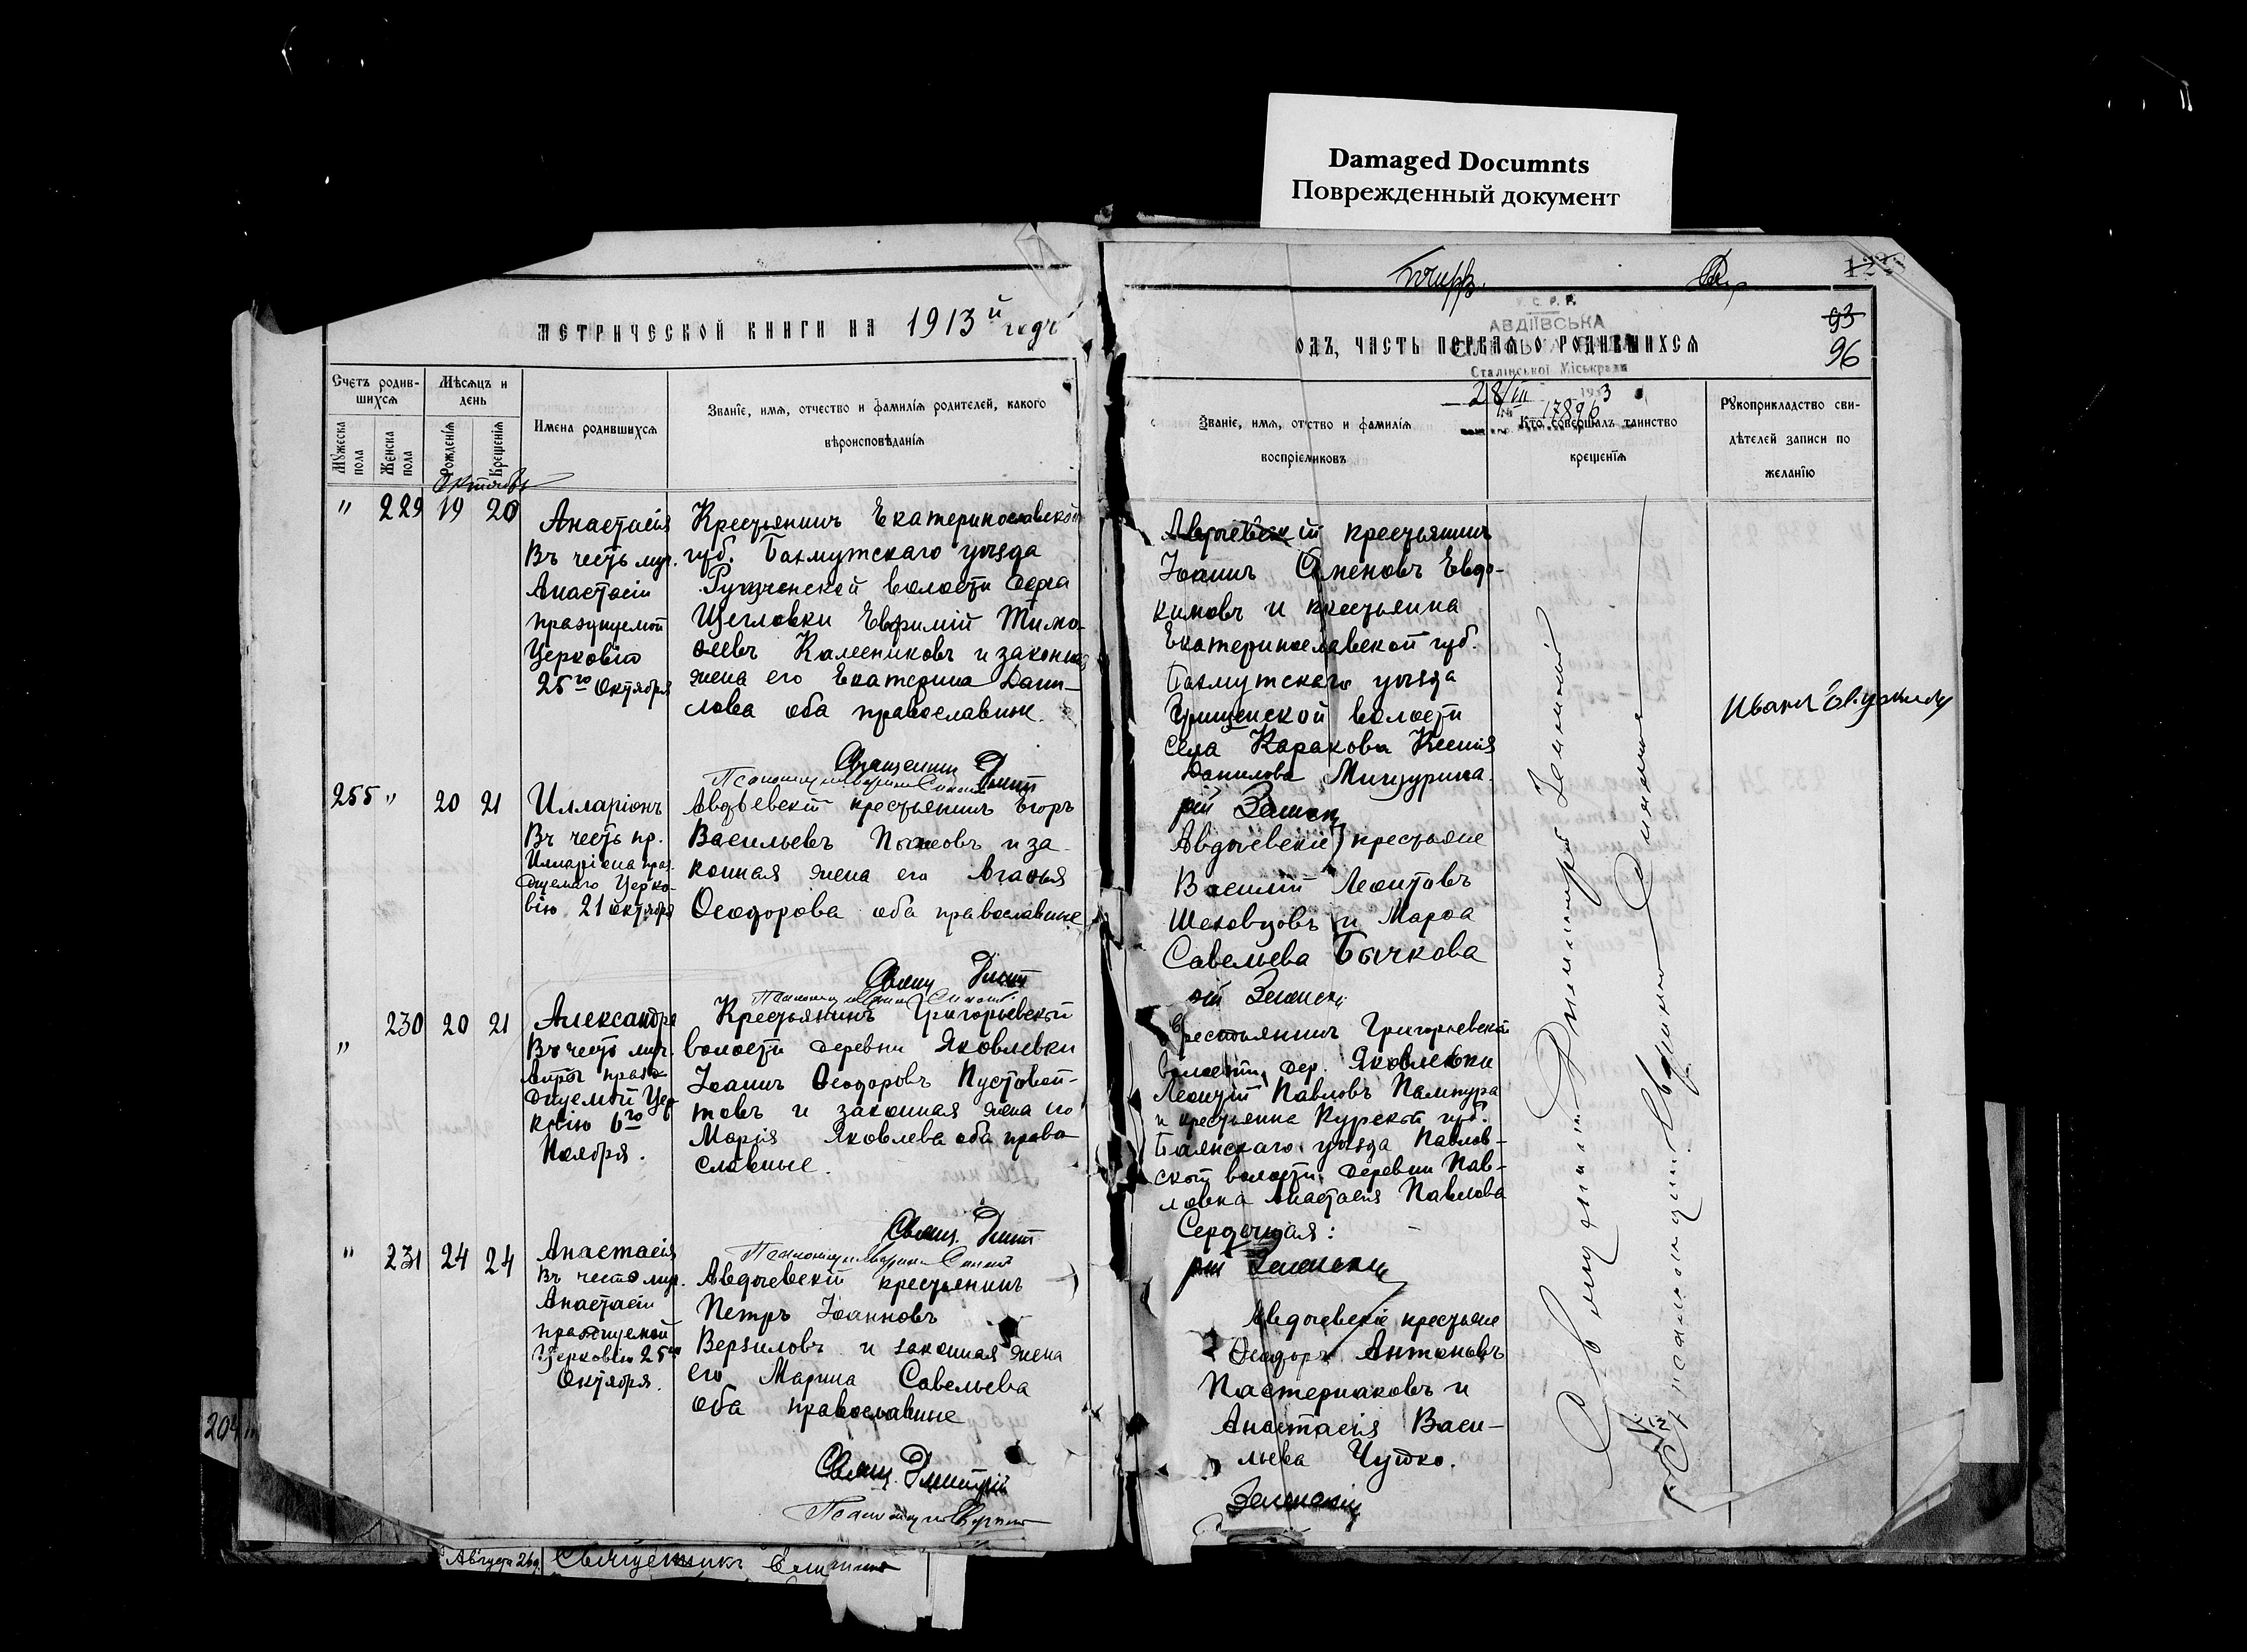 Damaged Documnts
Поврежденный документ
МЕТРИЧЕСКОЙ КНИГИ НА 1913й годъ
Счетъ родив-
шихся
Мѣсяцъ и
день
Мужеска
пола
Женска
пола
Рожденія
Крещенія
Имена родившихся
Званіе, имя, отчество и фамилія родителей, какого
вѣроисповѣданія
Октябрь
" 229 19 20
Анастасія
Въ честь муч.
Анастасіи
празднуемой
Церковію
25го Октября
Крестьянинъ Екатеринославской
губ. Бахмутскаго уѣзда
волости села
Щегловки Евфимій Тимо-
ѳеевъ Калесниковъ и законная
жена его Екатерина Дани-
лова оба православные.
Священник Дмит
255 " 20 21
Илларіонъ
Въ честь пр.
Илларіона праз-
днуемаго Церко-
вію 21 октября
Авдѣевскій крестьянинъ Егоръ
Васильевъ и за-
конная жена его Агафья
Ѳеодорова оба православные
Свящ Дмит
" 230 20 21
Александра
Въ честь муч.
празд-
днуемой Цер-
ковію 6го
Ноября.
Крестьянинъ Григорьевской
волости деревни Яковлевки
Іоаннъ Ѳеодоровъ Пустовой-
товъ и законная жена его
Марія Яковлева оба право-
славные.
Свящ. Дмит
" 231 24 24
Анастасія
Въ честь муч.
Анастасіи
празднуемой
Церковію 25го
Октября.
Авдѣевскій крестьянинъ
Петръ Іоанновъ
Верзиловъ и законная жена
его Марина Савельева
оба православные
Свящ. Дмитрій
204
Августа 26 д. Священникъ
123
93
96
У. С. Р. Р.
АВДІЇВСЬКА
Сталінської Міськради
28/III 1933
17896
ОДЪ, ЧАСТЬ ПЕРВАЯ О РОДИВШИХСЯ
Званіе, имя, отчство и фамилія
воспріємниковъ
Кто совершалъ таинство
крещенія
Рукоприкладство сви-
дѣтелей записи по
желанію
Авдѣевскій крестьянинъ
Іоаннъ Семеновъ Евдо-
кимовъ и крестьянка
Екатеринославской губ.
Бахмутскаго уѣзда
Гришинской волости
села Каракова Ксенія
Данилова Мишурина.
рій Зеленск
Авдѣевскіе крестьяне
Василій Леонтовъ
Шеховцовъ и Марѳа
Савельева Бычкова
рій Зеленск
Крестьянинъ Григорьевской
волости, дер. Яковлевки
Леонтій Павловъ Пампура
и крестьянка Курской губ.
уѣзда Павлов-
ской волости деревни Пав-
ловка Анастасія Павлова
рій Зеленскій
Авдѣевскіе крестьяне
Ѳеодоръ Антоновъ
Пастернаковъ и
Анастасія Васи-
льева Чутко.
Зеленскій
Священникъ Дмитрій Зеленскій
Иванъ Евдокимов